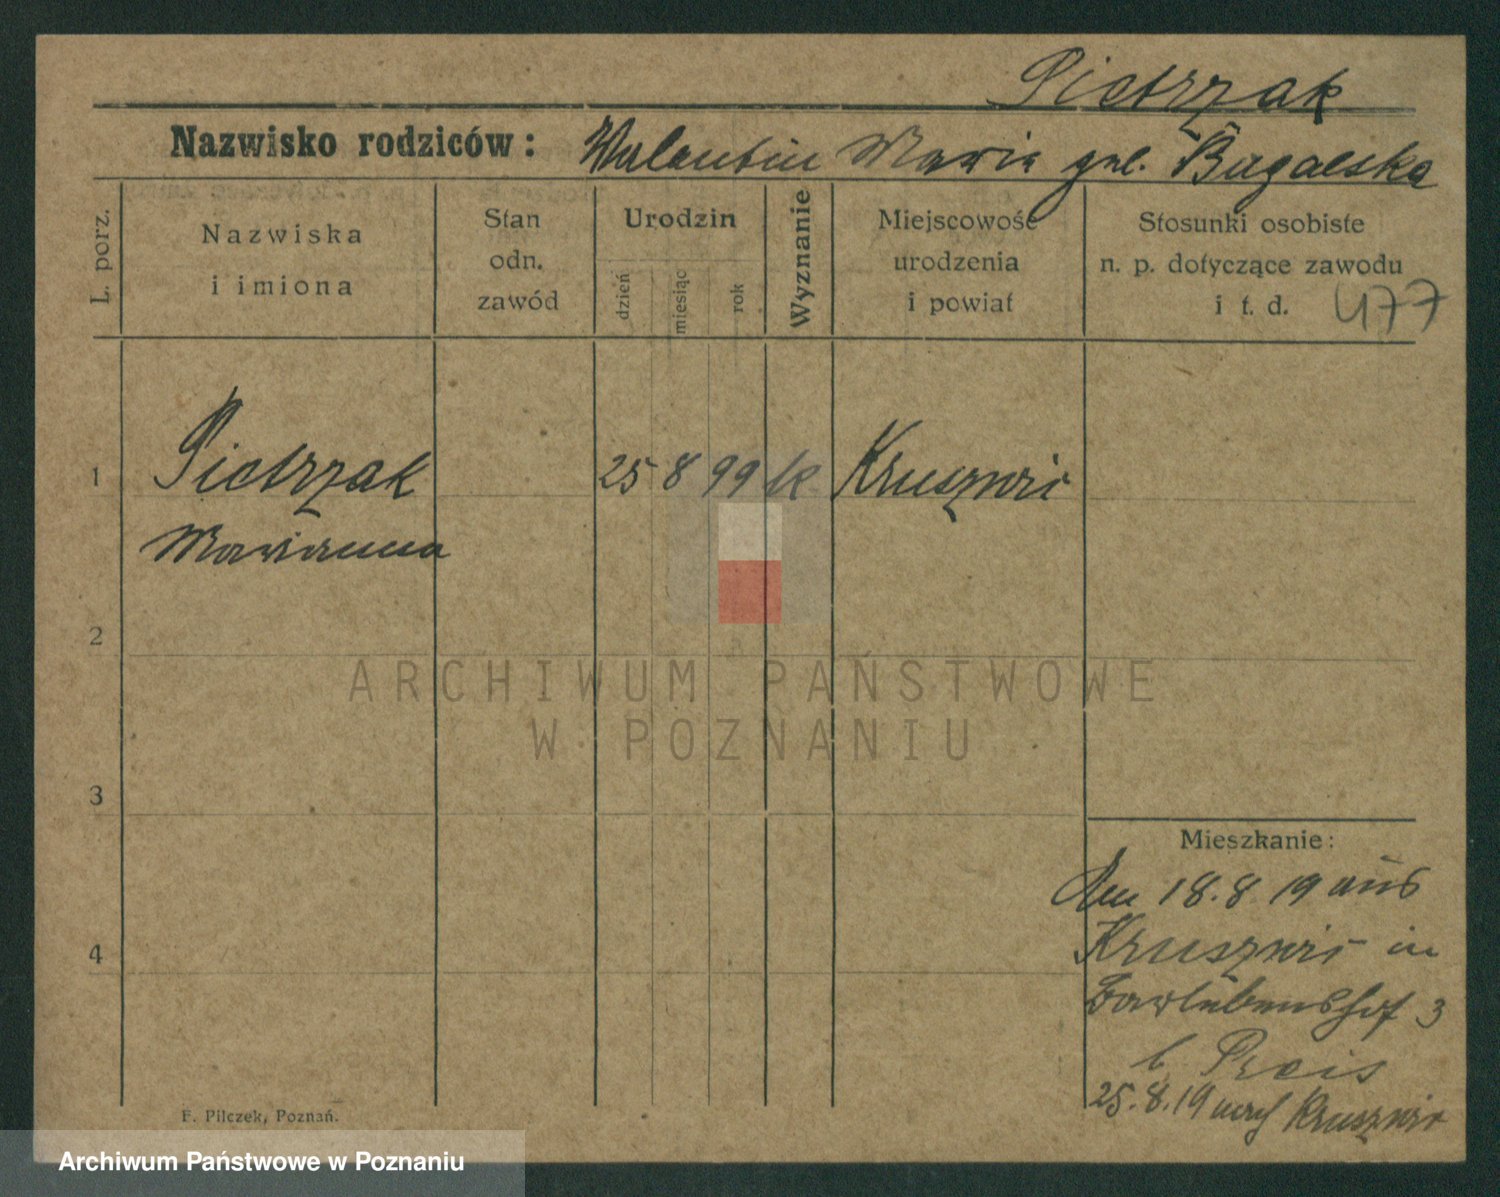 Pietrzak
Nazwisko rodziców: Walentin Maria geb. Bugalska
L. porz.
Nazwiska
i imiona
Stan
odn.
zawód
Urodzin
dzień
miesiąc
rok
Wyznanie
Miejscowość
urodzenia
i powiat
Stosunki osobiste
n. p. dotyczące zawodu
i t. d.
477
1 Pietrzak 25 8 99 k Kruszwi
Marianna
2
ARCHIWUM PAŃSTWOWE
W POZNANIU
3
Mieszkanie:
Am 18.8.19 aus
4 Kruszwi in
3
b. Preis
25.8.19 nach Kruszwi
F. Pilczek, Poznań.
Archiwum Państwowe w Poznaniu